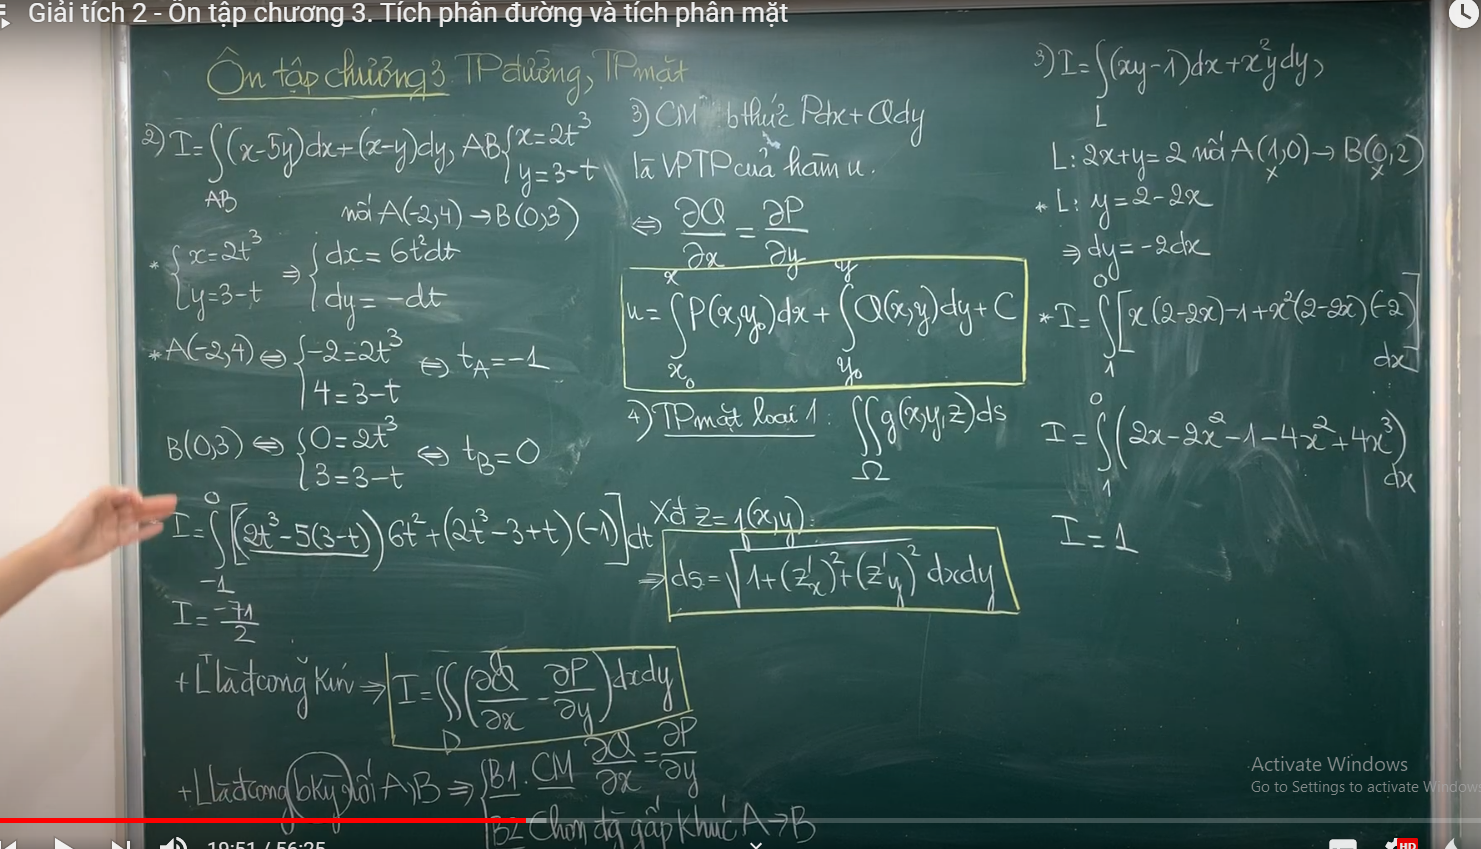 Giải tích 2 - Ôn tập chương 3. Tích phân đường và tích phân mặt
Ôn tập chương 3: TP đường, TP mặt
2) I = ∫_{AB} (x-5y)dx + (x-y)dy, AB { x = 2t³
y = 3-t
nối A(-2,4) → B(0,3) )
* { x = 2t³ ⇒ { dx = 6t²dt
y = 3-t dy = -dt
* A(-2,4) ⇔ { -2 = 2t³ ⇔ t_A = -1
4 = 3-t
B(0,3) ⇔ { 0 = 2t³ ⇔ t_B = 0
3 = 3-t
I = ∫_{-1}^{0} [(2t³ - 5(3-t)) 6t² + (2t³ - 3 + t)(-1)] dt
I = -71/2
+ L là đcong kín ⇒ I = ∬_D (∂Q/∂x - ∂P/∂y) dxdy
+ L là đcong bkỳ nối A, B ⇒ { B1. CM ∂Q/∂x = ∂P/∂y
B2 Chọn đg gấp khúc A → B
3) CM bthức Pdx + Qdy
là VPTP của hàm u.
⇔ ∂Q/∂x = ∂P/∂y
u = ∫_{x₀}^{x} P(x,y₀)dx + ∫_{y₀}^{y} Q(x,y)dy + C
4) TP mặt loại 1: ∬_Ω g(x,y,z)ds
Xđ z = f(x,y).
⇒ ds = √(1 + (z'x)² + (z'y)²) dxdy
3) I = ∫_L (xy-1)dx + x²y dy,
L: 2x+y = 2 nối A(1,0) → B(0,2)
* L: y = 2-2x
⇒ dy = -2dx
* I = ∫_1^0 [x.(2-2x) - 1 + x²(2-2x)(-2)] dx
I = ∫_1^0 (2x - 2x² - 1 - 4x² + 4x³) dx
I = 1
Activate Windows
Go to Settings to activate Windows
19:51 / 56:25
HD